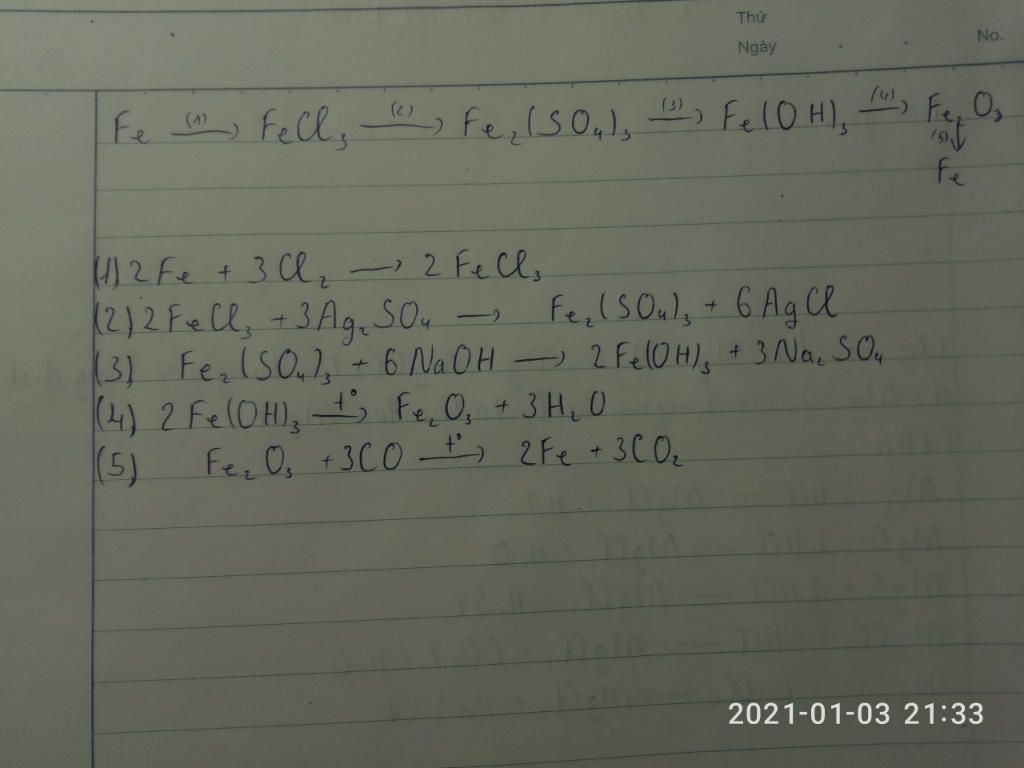 Thứ
Ngày
No.
Fe (1)→ FeCl₃ (2)→ Fe₂(SO₄)₃ (3)→ Fe(OH)₃ (4)→ Fe₂O₃
(5)↓
Fe
(1) 2Fe + 3Cl₂ → 2FeCl₃
(2) 2FeCl₃ + 3Ag₂SO₄ → Fe₂(SO₄)₃ + 6AgCl
(3) Fe₂(SO₄)₃ + 6NaOH → 2Fe(OH)₃ + 3Na₂SO₄
(4) 2Fe(OH)₃ t°→ Fe₂O₃ + 3H₂O
(5) Fe₂O₃ + 3CO t°→ 2Fe + 3CO₂
2021-01-03 21:33